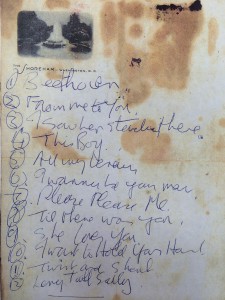 THE SHOREHAM · WASHINGTON, D.C.
1 Beethoven
2 From me to You
3 I Saw her standing there.
4 This Boy.
5 All my loving
6 I wanna be your man
7 Please Please Me.
8 Till there was you.
9 She Loves You
10 I want to Hold Your Hand
11 Twist and Shout
12 Long Tall Sally